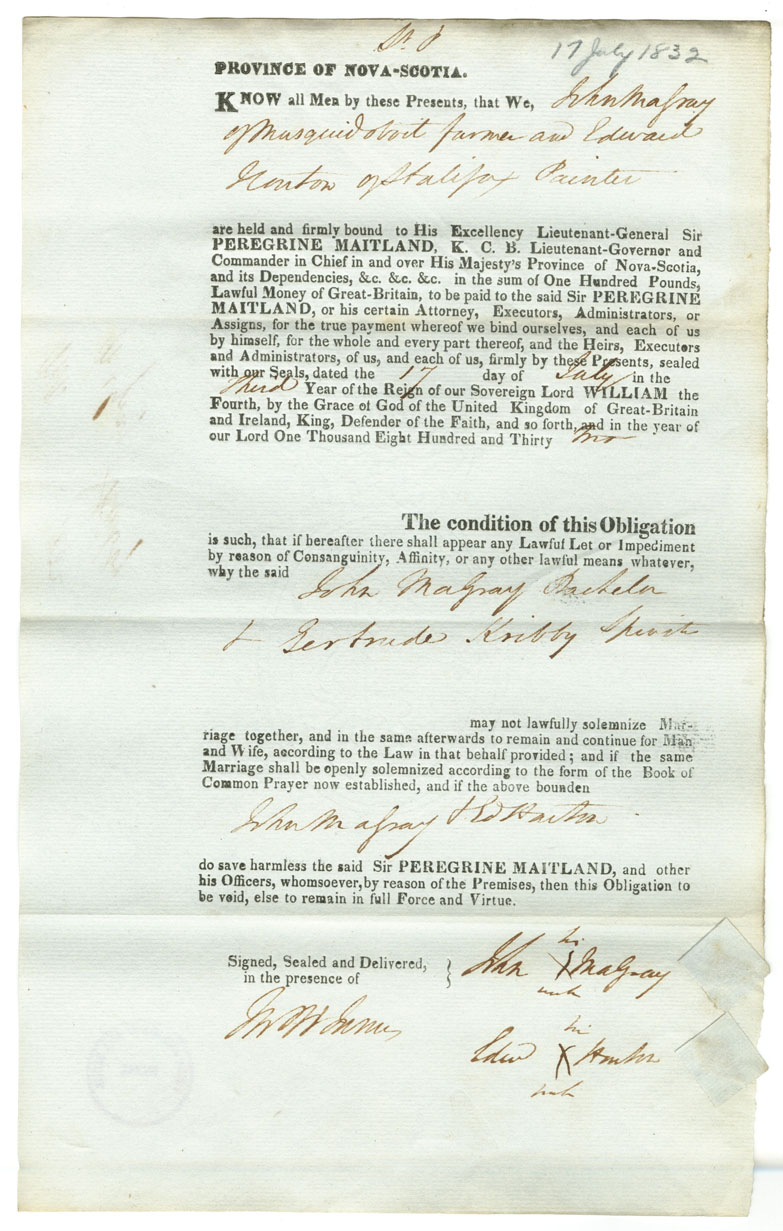 St. P
17 July 1832
PROVINCE OF NOVA-SCOTIA.
KNOW all Men by these Presents, that We, John MaGray
of Musquidoboit farmer and Edward
Horton of Halifax Painter
are held and firmly bound to His Excellency Lieutenant-General Sir
PEREGRINE MAITLAND, K. C. B. Lieutenant-Governor and
Commander in Chief in and over His Majesty's Province of Nova-Scotia,
and its Dependencies, &c. &c. &c. in the sum of One Hundred Pounds,
Lawful Money of Great-Britain, to be paid to the said Sir PEREGRINE
MAITLAND, or his certain Attorney, Executors, Administrators, or
Assigns, for the true payment whereof we bind ourselves, and each of us
by himself, for the whole and every part thereof, and the Heirs, Executors
and Administrators, of us, and each of us, firmly by these Presents, sealed
with our Seals, dated the 17 day of July in the
Third Year of the Reign of our Sovereign Lord WILLIAM the
Fourth, by the Grace of God of the United Kingdom of Great-Britain
and Ireland, King, Defender of the Faith, and so forth, and in the year of
our Lord One Thousand Eight Hundred and Thirty Two
The condition of this Obligation
is such, that if hereafter there shall appear any Lawful Let or Impediment
by reason of Consanguinity, Affinity, or any other lawful means whatever,
why the said
John MaGray Bachelor
+ Gertrude Kribby Spinster
may not lawfully solemnize Mar-
riage together, and in the same afterwards to remain and continue for Man
and Wife, according to the Law in that behalf provided; and if the same
Marriage shall be openly solemnized according to the form of the Book of
Common Prayer now established, and if the above bounden
John MaGray & Ed Horton
do save harmless the said Sir PEREGRINE MAITLAND, and other
his Officers, whomsoever, by reason of the Premises, then this Obligation to
be void, else to remain in full Force and Virtue.
Signed, Sealed and Delivered,
in the presence of
his
John X MaGray
mark
his
Edw X Horton
mark